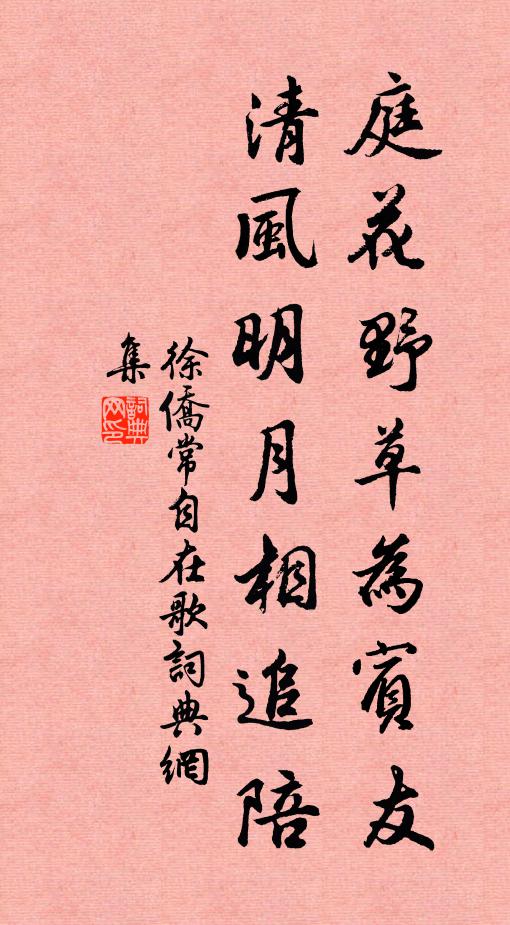 庭花野草為賓友
清風明月相追陪
徐僑常自在歌詞典網
集
詞典
网印